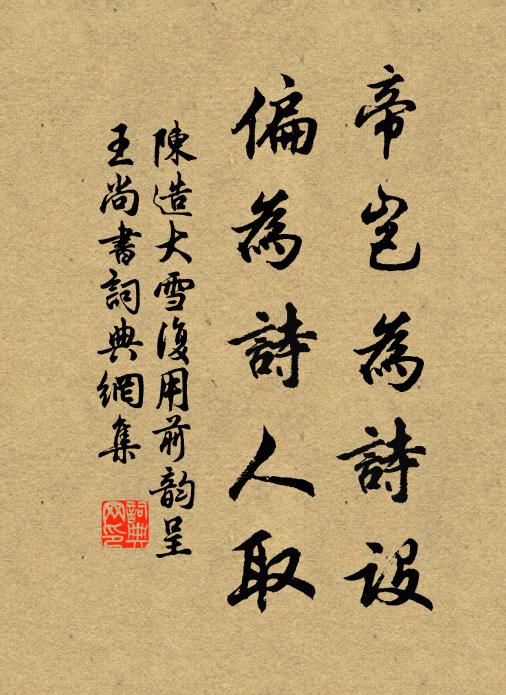 帝岂為詩設
偏為詩人取
陳造大雪復用前韵呈
王尚書詞典網集
詞典
网印